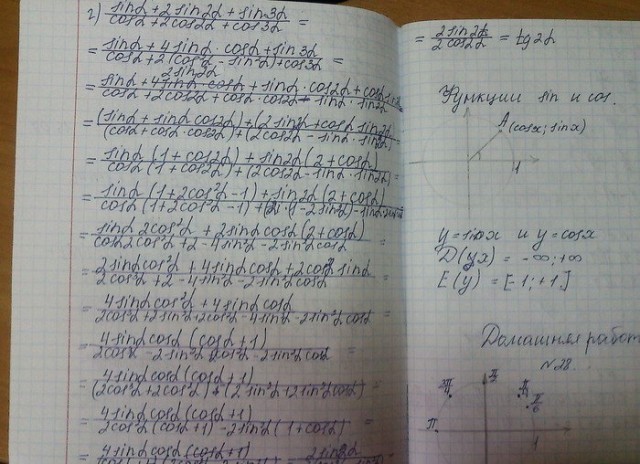 г) sinα + 2sin2α + sin3α / cosα + 2cos2α + cos3α =
= sinα + 4sinα · cosα + sin3α / cosα + 2(cos²α − sin²α) + cos3α =
= sinα + 2sin2α + sinα · cos2α + cosα · sin2α / cosα + 2cos2α + cosα · cos2α − sinα · sin2α =
= (sinα + sinα cos2α) + (2sin2α + cosα sin2α) / (cosα + cosα · cos2α) + (2cos2α − sinα · sin2α) =
= sinα (1 + cos2α) + sin2α (2 + cosα) / cosα (1 + cos2α) + (2cos2α − sinα · sin2α) =
= sinα (1 + 2cos²α − 1) + sin2α (2 + cosα) / cosα (1 + 2cos²α − 1) +
= sinα 2cos²α + 2sinα cosα (2 + cosα) / cosα 2cos²α + 2 − 4sin²α − 2sin²α cosα =
= 2sinα cos²α + 4sinα cosα + 2cos²α sinα / 2cos³α + 2 − 4sin²α − 2sin²α cosα =
= 4sinα cos²α + 4sinα cosα / 2cos³α + 2sin²α + 2cos²α − 4sin²α − 2sin²α cosα =
= 4sinα cosα (cosα + 1) / 2cos³α − 2sin²α + 2cos²α − 2sin²α cosα =
= 4sinα cosα (cosα + 1) / (2cos³α + 2cos²α) + (2sin²α + 2sin²α cosα) =
= 4sinα cosα (cosα + 1) / 2cos²α (cosα + 1) − 2sin²α (1 + cosα) =
= 4sinα cosα (cosα + 1)
= 2sin2α / 2cos2α = tg2α
Функции sin и cos.
A (cosx; sinx)
1
y = sinx и y = cosx
D(yx) = −∞; +∞
E(y) = [−1; +1]
Домашняя работ
N28.
π
1